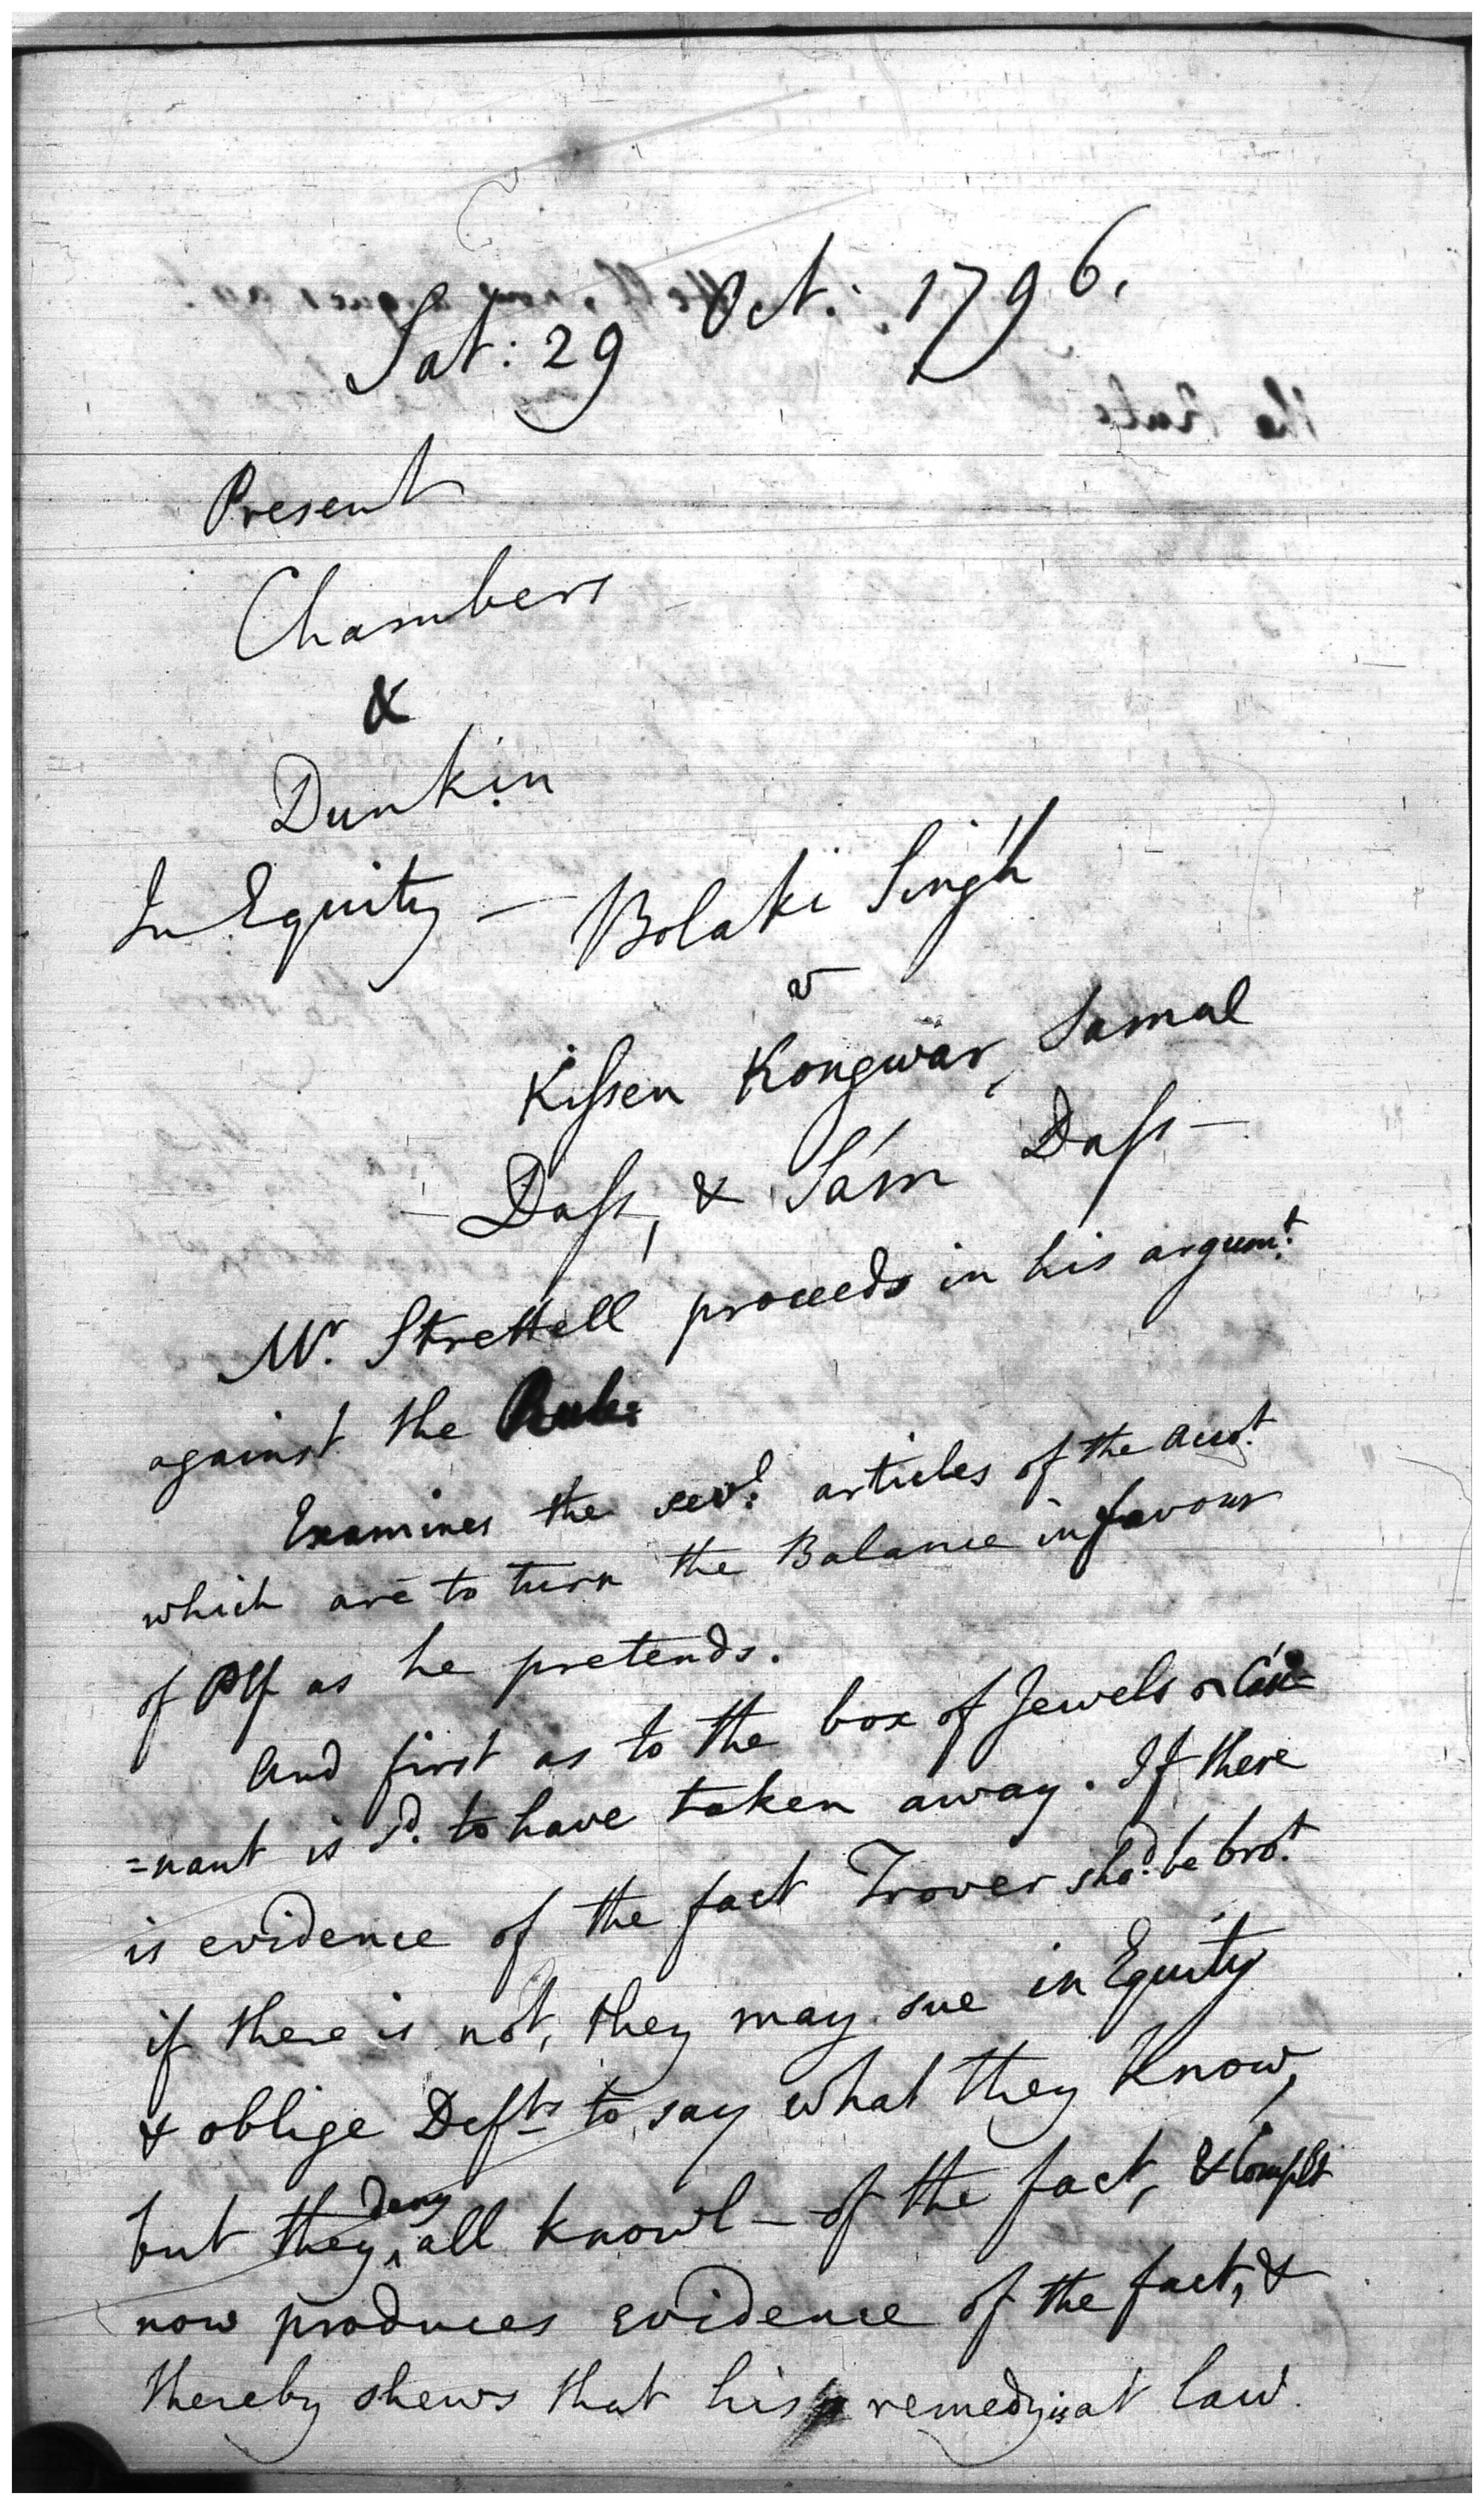 Sat: 29 Oct: 1796.
Present
Chambers
&
Dunkin
In Equity — Bolaki Singh
v
Kissen Kongwar, Samal
— Dass, & Sám Dass —
Mr. Strettell proceeds in his argumt.
against the Rule.
Examines the sevl. articles of the acct.
which are to turn the Balance in favour
of Plf as he pretends.
And first as to the box of Jewels
=nant is sd. to have taken away. If there
is evidence of the fact Trover shod. be brot.
if there is not, they may sue in Equity
& oblige Defts to say what they Know,
but they deny all knowl— of the fact, & Complt
now produces evidence of the fact, &
thereby shews that his remedy is at law.